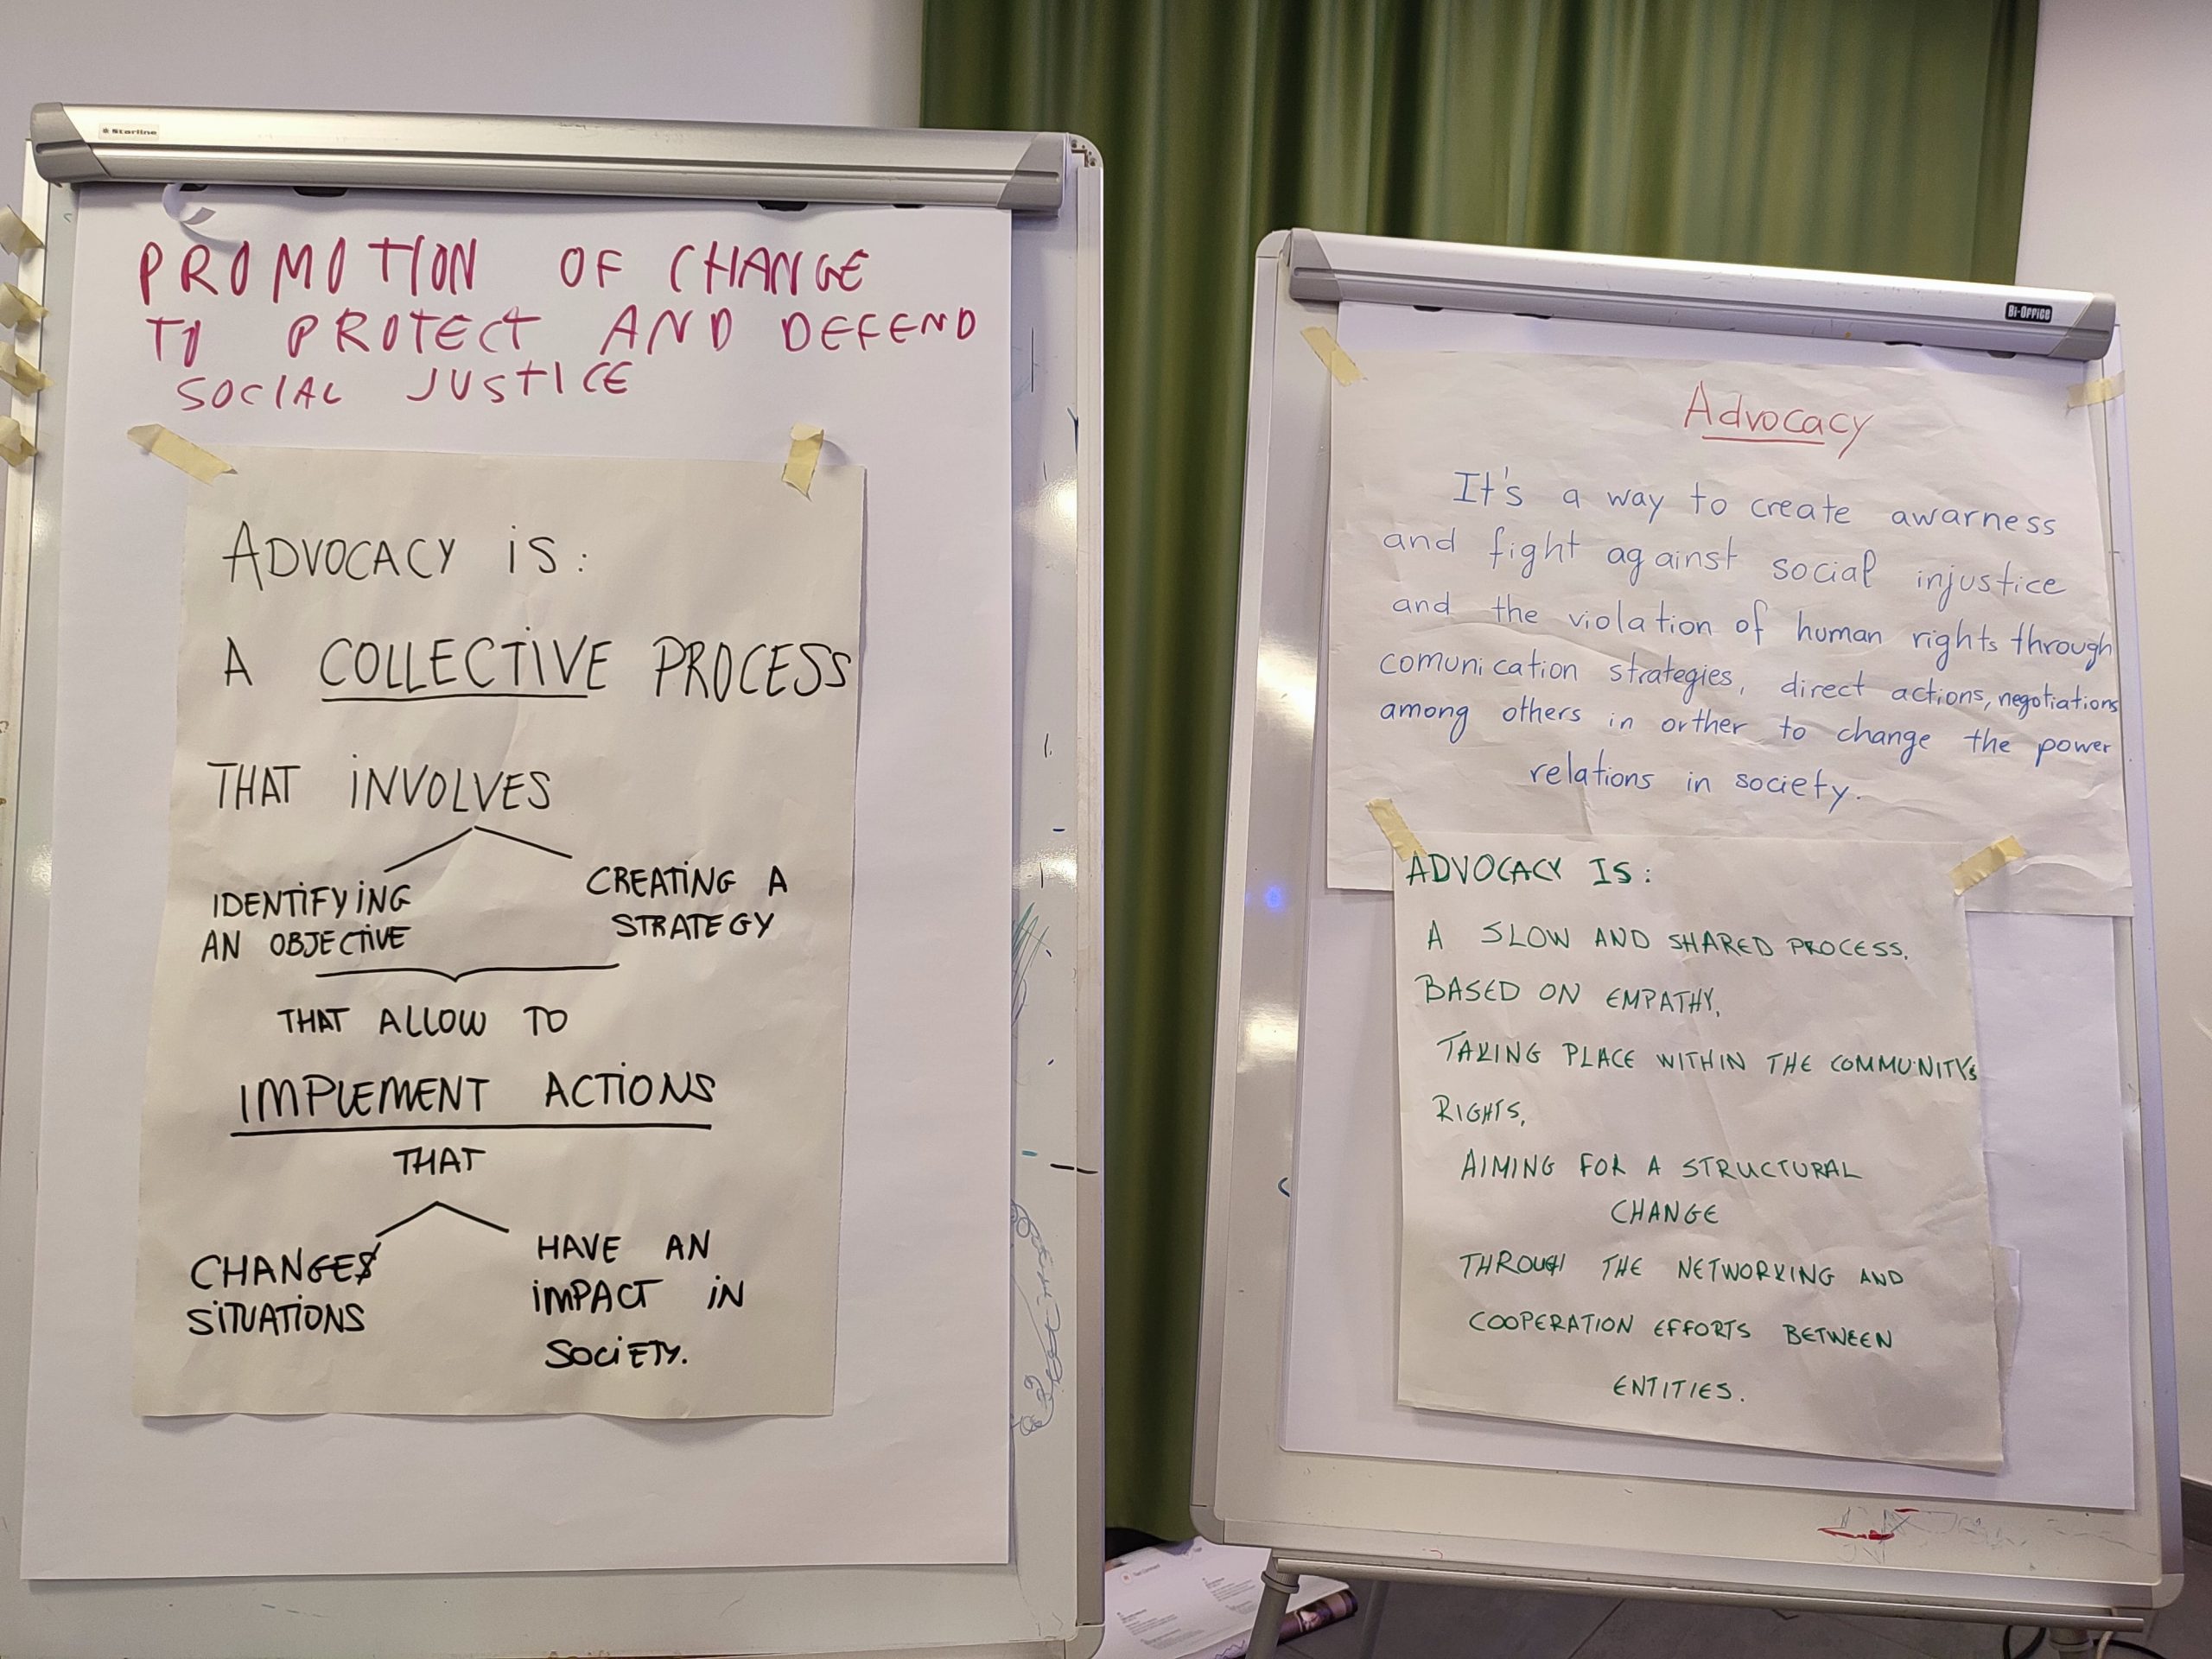 Starline
PROMOTION OF CHANGE
TO PROTECT AND DEFEND
SOCIAL JUSTICE
ADVOCACY IS:
A COLLECTIVE PROCESS
THAT INVOLVES
IDENTIFYING
AN OBJECTIVE
CREATING A
STRATEGY
THAT ALLOW TO
IMPLEMENT ACTIONS
THAT
CHANGE
SITUATIONS
HAVE AN
IMPACT IN
SOCIETY.
Bi-Office
Advocacy
It's a way to create awarness
and fight against social injustice
and the violation of human rights through
comunication strategies, direct actions, negotiations
among others in orther to change the power
relations in society.
ADVOCACY IS:
A SLOW AND SHARED PROCESS,
BASED ON EMPATHY,
TAKING PLACE WITHIN THE COMMUNITY'S
RIGHTS,
AIMING FOR A STRUCTURAL
CHANGE
THROUGH THE NETWORKING AND
COOPERATION EFFORTS BETWEEN
ENTITIES.